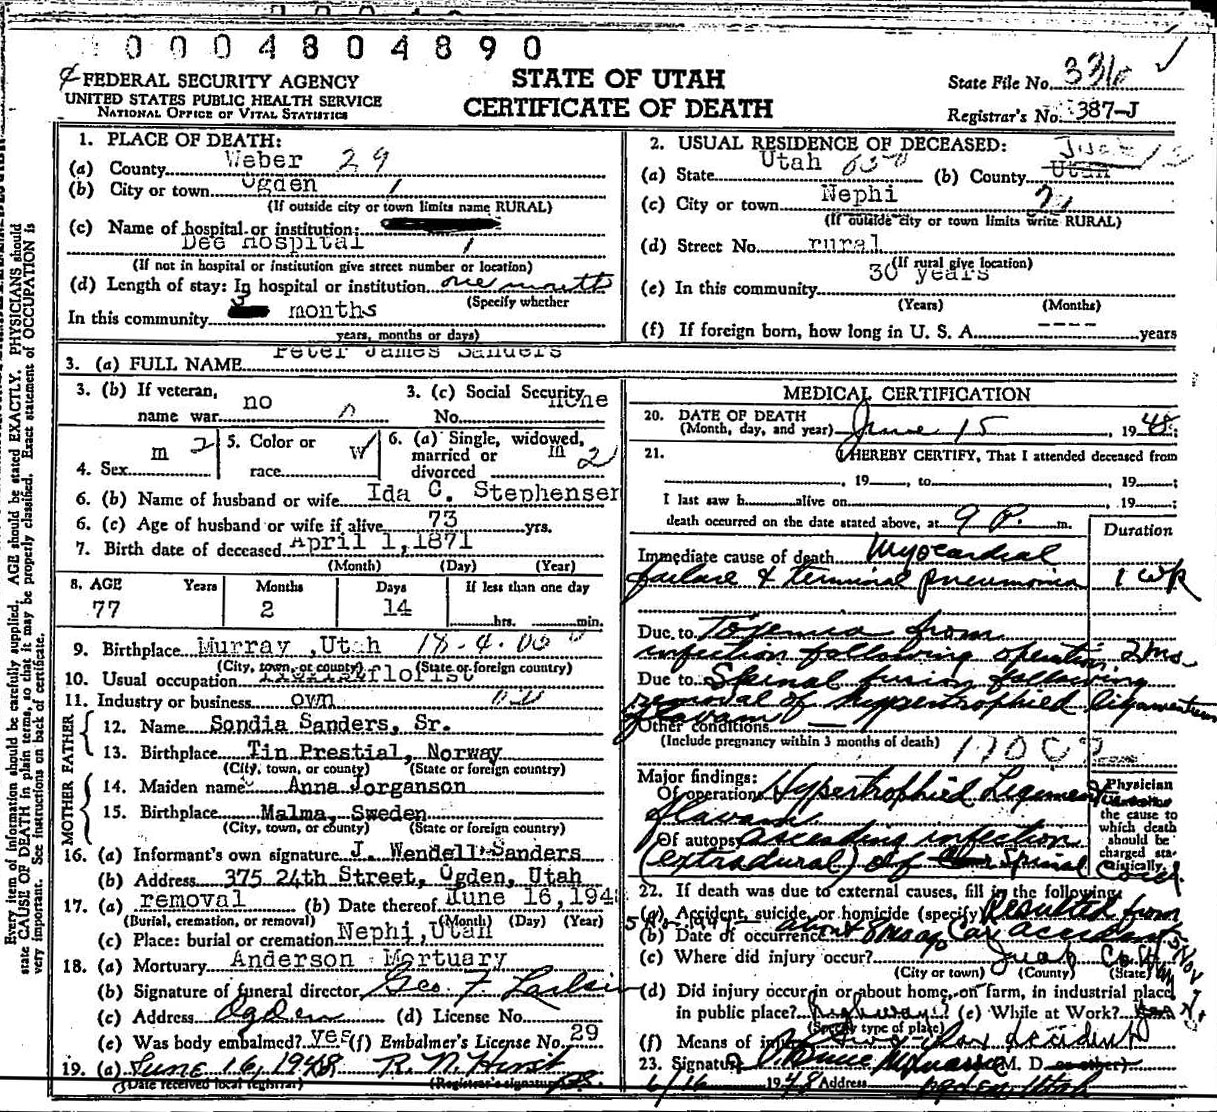 0004804890
FEDERAL SECURITY AGENCY
UNITED STATES PUBLIC HEALTH SERVICE
NATIONAL OFFICE OF VITAL STATISTICS
STATE OF UTAH
CERTIFICATE OF DEATH
State File No. 
Registrar's No. 387-J
1. PLACE OF DEATH:
(a) County Weber 29
(b) City or town Ogden 1
(If outside city or town limits name RURAL)
(c) Name of hospital or institution:
Dee Hospital 1
(If not in hospital or institution give street number or location)
(d) Length of stay: In hospital or institution one month
(Specify whether
In this community 3 months
years, months or days)
2. USUAL RESIDENCE OF DECEASED:
(a) State Utah (b) County Utah
(c) City or town Nephi
(If outside city or town limits write RURAL)
(d) Street No. rural
(If rural give location)
(e) In this community 30 years
(Years) (Months)
(f) If foreign born, how long in U. S. A. ---- years
3. (a) FULL NAME Peter James Sanders
3. (b) If veteran, name war no
3. (c) Social Security No. none
4. Sex m 2
5. Color or race W
6. (a) Single, widowed, married or divorced m 2
6. (b) Name of husband or wife Ida C. Stephensen
6. (c) Age of husband or wife if alive 73 yrs.
7. Birth date of deceased April 1, 1871
(Month) (Day) (Year)
8. AGE Years Months Days If less than one day
77 2 14 hrs. min.
9. Birthplace Murray, Utah
(City, town, or county) (State or foreign country)
10. Usual occupation florist
11. Industry or business own
FATHER
12. Name Sondia Sanders, Sr.
13. Birthplace Tin Prestial, Norway
(City, town, or county) (State or foreign country)
MOTHER
14. Maiden name Anna Jorganson
15. Birthplace Malma, Sweden
(City, town, or county) (State or foreign country)
16. (a) Informant's own signature J. Wendell Sanders
(b) Address 375 24th Street, Ogden, Utah
17. (a) removal (b) Date thereof June 16, 194
(Burial, cremation, or removal) (Month) (Day) (Year)
(c) Place: burial or cremation Nephi, Utah
18. (a) Mortuary Anderson Mortuary
(b) Signature of funeral director Geo F Larkin
(c) Address Ogden (d) License No.
(e) Was body embalmed? yes (f) Embalmer's License No. 29
19. (a) June 16, 1948 R. N. Hirst
(Date received local registrar) (Registrar's signature)
MEDICAL CERTIFICATION
20. DATE OF DEATH
(Month, day, and year) June 15, 1948;
21. I HEREBY CERTIFY, That I attended deceased from
, 19 , to , 19 ;
I last saw h alive on , 19 ;
death occurred on the date stated above, at 9 P. m.
Duration
Immediate cause of death Myocardial
failure & terminal pneumonia 1 wk
Due to Toxemia from
infection following operation. 2 mo
Due to Spinal fusion following
removal of hypertrophied ligamentum
flavum
Other conditions
(Include pregnancy within 3 months of death)
Major findings:
Of operation Hypertrophied Ligament
flavum
Of autopsy ascending infection
(extradural) of Spinal Cord.
Physician
the cause to
which death
should be
charged sta-
tistically.
22. If death was due to external causes, fill in the following:
(a) Accident, suicide, or homicide (specify) Resulted from
(b) Date of occurrence about 8 mo ago Car accident
(c) Where did injury occur? Juab Co
(City or town) (County) (State)
(d) Did injury occur in or about home, on farm, in industrial place,
in public place? highway (e) While at Work?
(Specify type of place)
(f) Means of injury Car accident
23. Signature (M. D. or other)
6/16 1948 Address Ogden, Utah
Every item of information should be carefully supplied. AGE should be stated EXACTLY. PHYSICIANS should
state CAUSE OF DEATH in plain terms, so that it may be properly classified. Exact statement of OCCUPATION is
very important. See instructions on back of certificate.